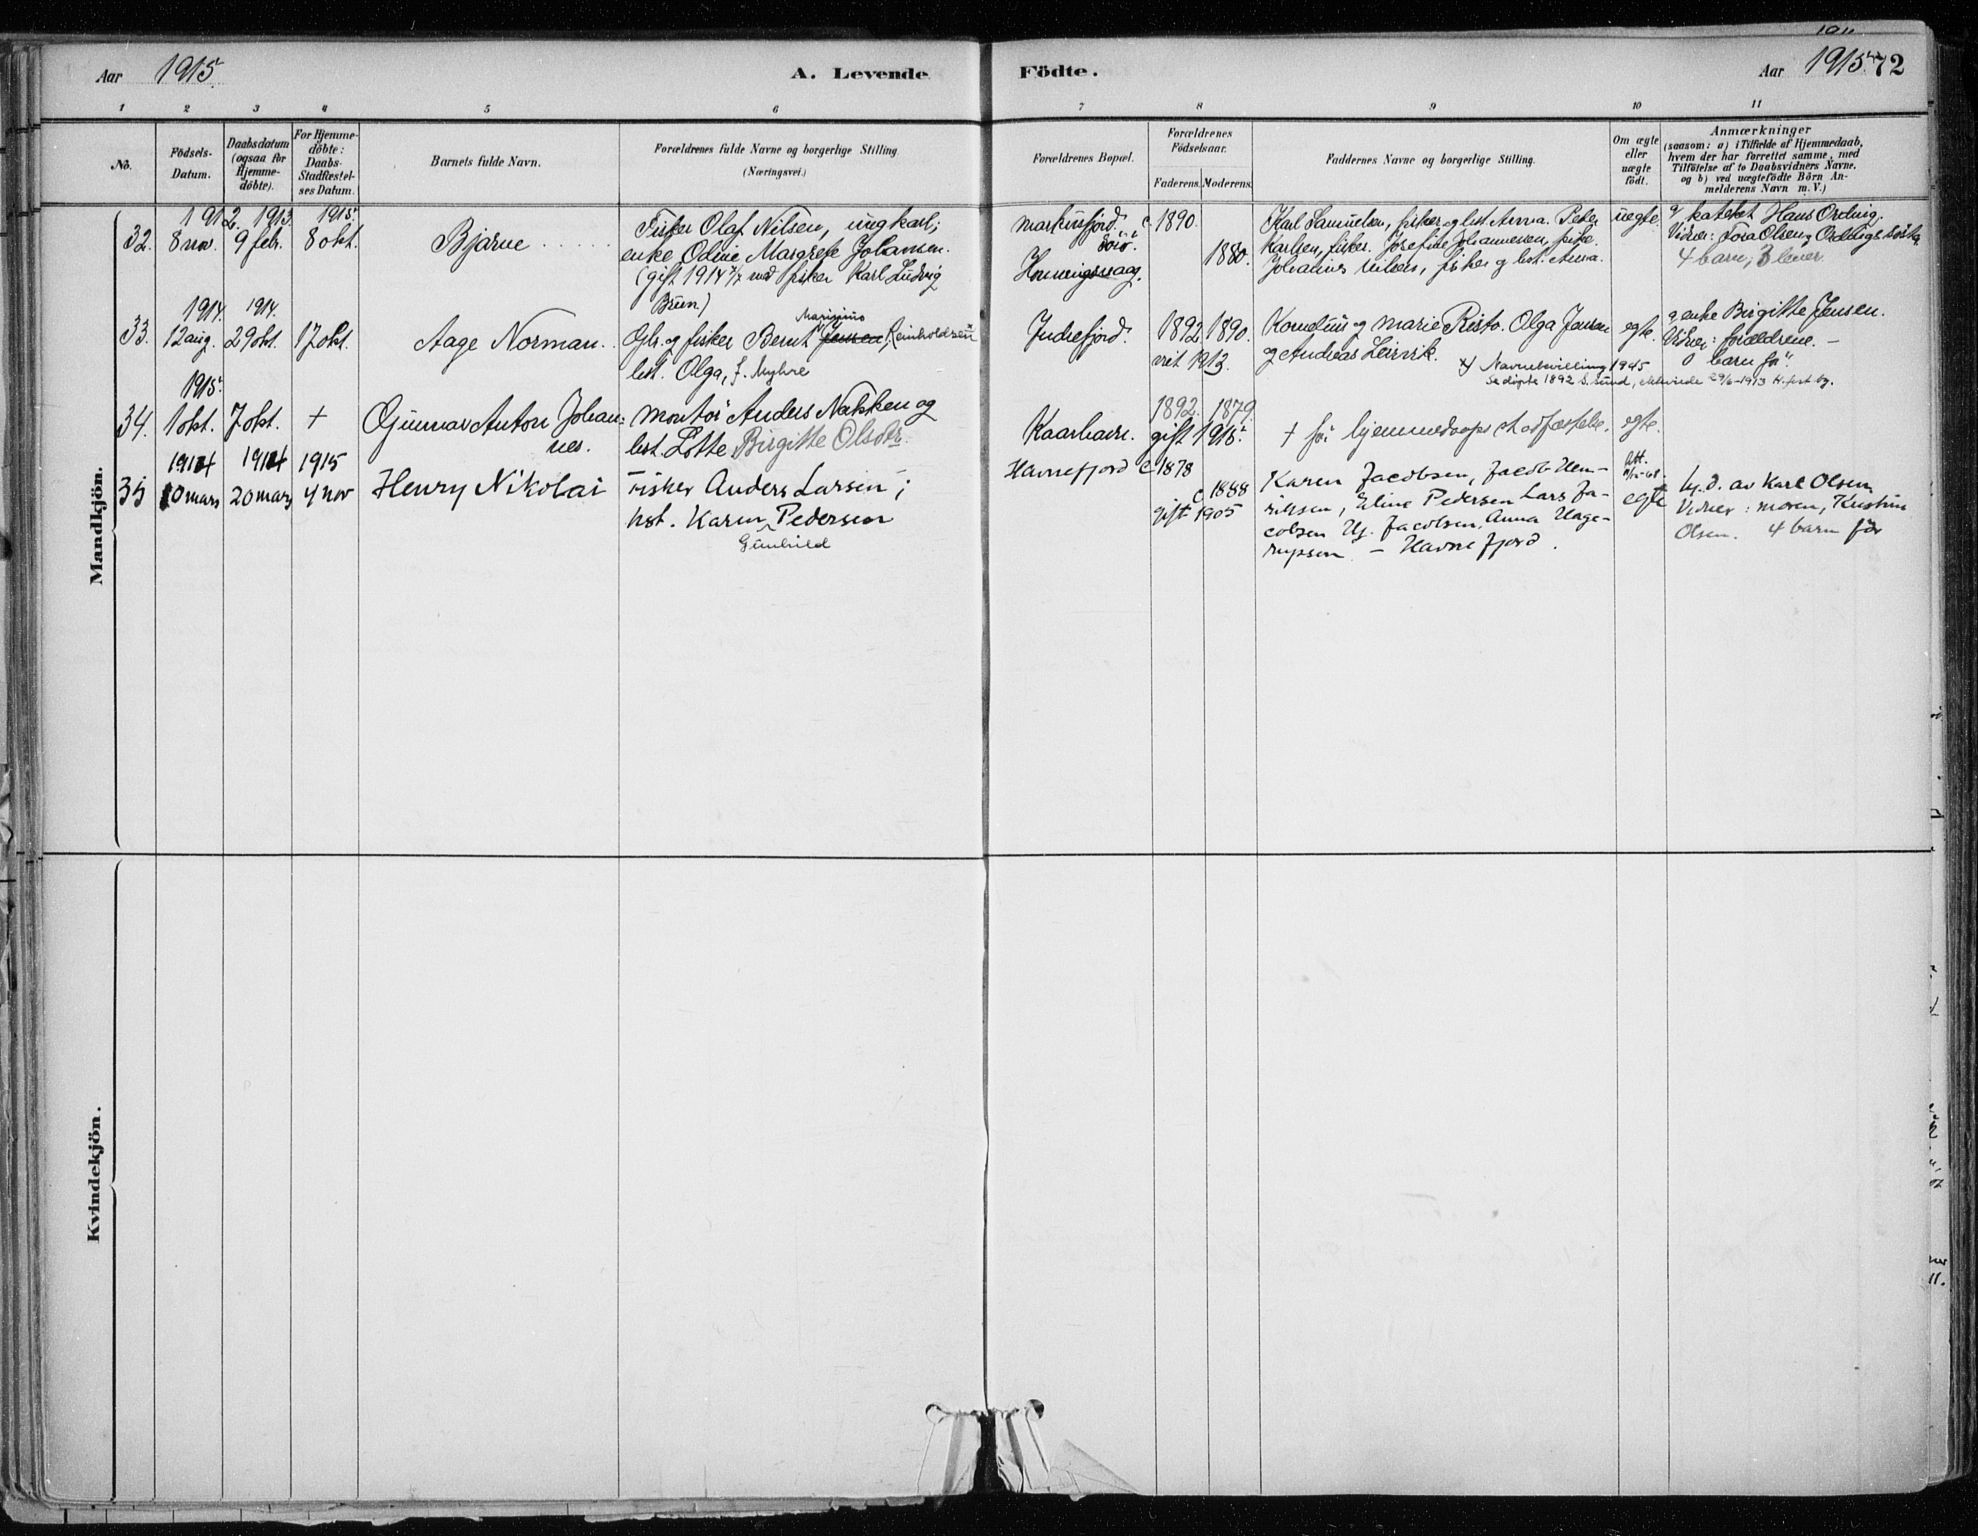 Aar 1915.
A. Levende
Födte.
Aar 1915
72
1 2 3 4 5 6 7 8 9 10 11
No.
Födsels-
Datum.
Daabsdatum
(ogsaa for
Hjemme-
döbte).
For Hjemme-
döbte:
Daabs-
Stadfæstel-
ses Datum.
Barnets fulde Navn.
Forældrenes fulde Navne og borgerlige Stilling.
(Næringsvei.)
Forældrenes Bopæl.
Forældrenes
Födselsaar.
Faderens. Moderens.
Faddernes Navne og borgerlige Stilling.
Om ægte
eller
uægte
født.
Anmærkninger
(saasom: a) i Tilfælde af Hjemmedaab,
hvem der har forrettet samme, med
Tilföielse af to Daabsvidners Navne,
og b) ved uægtefödte Börn An-
melderens Navn m. V.)
Mandkjön.
1912 1913 1915
32. 8 9 febr. 8 okt. Bjarne
Fisker Olaf Nilsen, ungkarl;
enke Odine Margrete Johansen.
(gift 1914 med fisker Karl Ludvig
Brun)
Honningsvaag.
1890.
1880.
Karl Samuelsen, fisker og hst. Anna. Peter
Karlsen, fisker. Josefine Johannessen, pike.
Johannes Nilsen, fisker og hst. Anna.
uegte.
g kateket Hans Ording.
Vidner: Tora Olsen, Ordings
4 barn, 3 lever
1914. 1914.
33. 12 aug. 29 okt. 17 okt. Aage Norman.
Marisius
Gbr. og fisker Bernt Jensen, Reinholdsen
hst. Olga, f. Myhre
Indrefjord.
1892 1890.
viet 1913.
Kornelius og Marie Risto. Olga Jensen
og Andreas Leirvik.
x) Navnebevilling 1945
Se døpte 1892 S. sund, 29/6-1913 H.fest by.
egte.
g. enke Birgitte Jensen.
Vidner: forældrene. —
0 barn før.
1915.
34. 1 okt. 7 okt. + Gunnar Anton Johan-
nes.
Montør Anders Nakken og
hst. Lotte Birgitte Olsdtr.
Kaarhavn.
1892. 1879.
gift 1915.
+ før hjemmedaaps stadfæstelse.
egte.
1914 1914 1915
35 10 mars 20 mars 4 nov Henry Nikolai
Fisker Anders Larsen;
hst. Karen Pedersen
Gunhild
Havnefjord
c 1878
c 1888
gift 1905
Karen Jacobsen, Jacob Hen-
riksen, Eline Pedersen Lars Ja-
cobsen Hj. Jacobsen, Anna
— Havnefjord.
Att.
egte
hj.d. av Karl Olsen
Vidner: moren, Kristine
Olsen. 4 barn før
Kvindekjön.